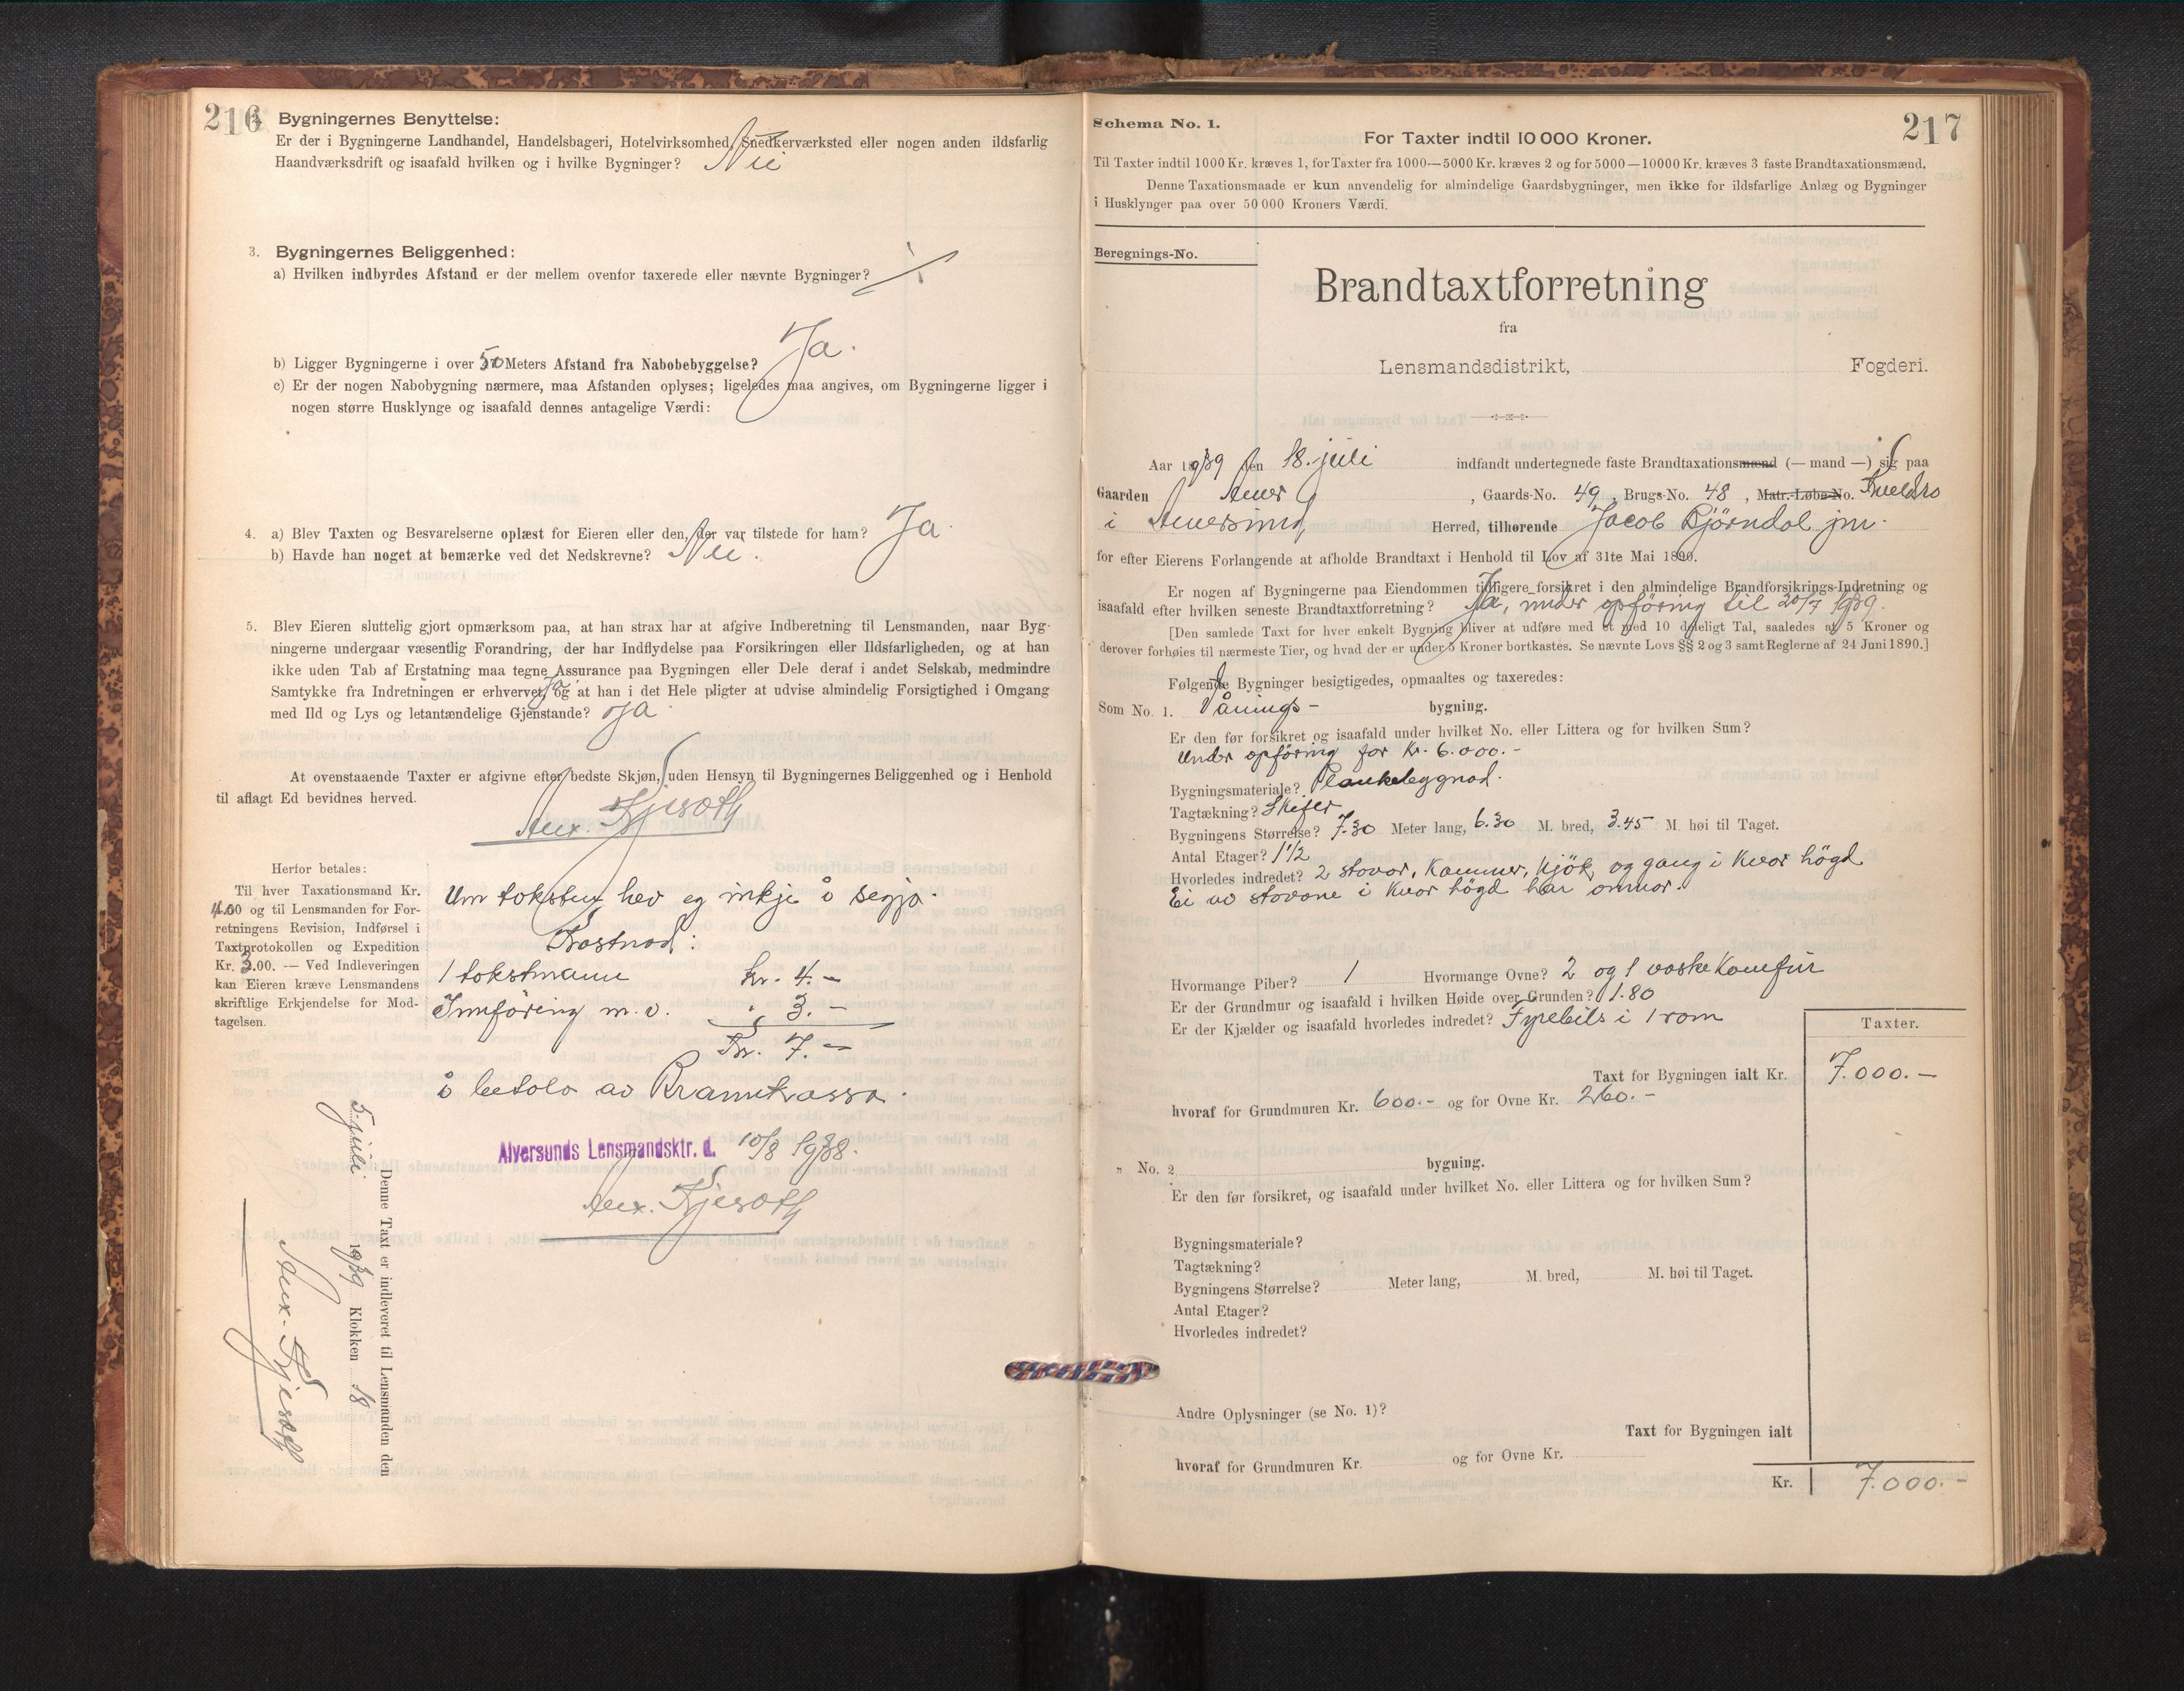 216
2. Bygningernes Benyttelse:
Er der i Bygningerne Landhandel, Handelsbageri, Hotelvirksomhed, Snedkerværksted eller nogen anden ildsfarlig
Haandværksdrift og isaafald hvilken og i hvilke Bygninger? Nei
3. Bygningernes Beliggenhed:
a) Hvilken indbyrdes Afstand er der mellem ovenfor taxerede eller nævnte Bygninger?
b) Ligger Bygningerne i over 50 Meters Afstand fra Nabobebyggelse? Ja.
c) Er der nogen Nabobygning nærmere, maa Afstanden oplyses; ligeledes maa angives, om Bygningerne ligger i
nogen større Husklynge og isaafald dennes antagelige Værdi:
4. a) Blev Taxten og Besvarelserne oplæst for Eieren eller den, der var tilstede for ham? Ja.
b) Havde han noget at bemærke ved det Nedskrevne? Nei.
5. Blev Eieren sluttelig gjort opmærksom paa, at han strax har at afgive Indberetning til Lensmanden, naar Byg-
ningerne undergaar væsentlig Forandring, der har Indflydelse paa Forsikringen eller Ildsfarligheden, og at han
ikke uden Tab af Erstatning maa tegne Assurance paa Bygningen eller Dele deraf i andet Selskab, medmindre
Samtykke fra Indretningen er erhvervet, og at han i det Hele pligter at udvise almindelig Forsigtighed i Omgang
med Ild og Lys og letantændelige Gjenstande? Ja
At ovenstaaende Taxter er afgivne efter bedste Skjøn, uden Hensyn til Bygningernes Beliggenhed og i Henhold
til aflagt Ed bevidnes herved.
Herfor betales:
Til hver Taxationsmand Kr.
4.00 og til Lensmanden for For-
retningens Revision, Indførsel i
Taxtprotokollen og Expedition
Kr. 3.00. — Ved Indleveringen
kan Eieren kræve Lensmandens
skriftlige Erkjendelse for Mod-
tagelsen.
Um taksten hev eg inkje å segja.
Kostnad:
1 takstmann kr. 4.-
Innføring m.v. " 3.-
Kr. 7.-
å betala av Brannkassa.
Alversunds Lensmandsktr. d. 10/8 1938.
Denne Taxt er indleveret til Lensmanden den
5. juli 1939 Klokken 18
217
Schema No. 1.
For Taxter indtil 10 000 Kroner.
Til Taxter indtil 1000 Kr. kræves 1, for Taxter fra 1000—5000 Kr. kræves 2 og for 5000—10000 Kr. kræves 3 faste Brandtaxationsmænd.
Denne Taxationsmaade er kun anvendelig for almindelige Gaardsbygninger, men ikke for ildsfarlige Anlæg og Bygninger
i Husklynger paa over 50 000 Kroners Værdi.
Beregnings-No.
Brandtaxtforretning
fra
Lensmandsdistrikt, Fogderi.
Aar 1939 den 18. juli indfandt undertegnede faste Brandtaxationsmænd (— mand —) sig paa
Gaarden Alver, Gaards-No. 49, Brugs-No. 48, Matr.-Løbe-No. Kveldro
i Alversund, Herred, tilhørende Jacob Bjørndal jnr.
for efter Eierens Forlangende at afholde Brandtaxt i Henhold til Lov af 31te Mai 1890.
Er nogen af Bygningerne paa Eiendommen tidligere forsikret i den almindelige Brandforsikrings-Indretning og
isaafald efter hvilken seneste Brandtaxtforretning? Ja, under opføring til 20/7 1939.
[Den samlede Taxt for hver enkelt Bygning bliver at udføre med et med 10 deleligt Tal, saaledes at 5 Kroner og
derover forhøies til nærmeste Tier, og hvad der er under 5 Kroner bortkastes. Se nævnte Lovs §§ 2 og 3 samt Reglerne af 24 Juni 1890.]
Følgende Bygninger besigtigedes, opmaaltes og taxeredes:
Som No. 1. Vånings- bygning.
Er den før forsikret og isaafald under hvilket No. eller Littera og for hvilken Sum?
Under opføring for kr. 6.000.-
Bygningsmateriale? Plankebyggnad.
Tagtækning? Skifer
Bygningens Størrelse? 7.30 Meter lang, 6.30 M. bred, 3.45 M. høi til Taget.
Antal Etager? 1 1/2
Hvorledes indredet? 2 stovor, kammer, kjøk, og gang i kvar høgd
Ei av stovone i kvar høgd har omnar.
Hvormange Piber? 1 Hvormange Ovne? 2 og 1 vaskekomfür
Er der Grundmur og isaafald i hvilken Høide over Grunden? 1.80
Er der Kjælder og isaafald hvorledes indredet? Fyrebils i 1 rom
Taxter.
Taxt for Bygningen ialt Kr. 7.000.-
hvoraf for Grundmuren Kr. 600.- og for Ovne Kr. 260.-
" No. 2 bygning.
Er den før forsikret, og isaafald under hvilket No. eller Littera og for hvilken Sum?
Bygningsmateriale?
Tagtækning?
Bygningens Størrelse? Meter lang, M. bred, M. høi til Taget.
Antal Etager?
Hvorledes indredet?
Andre Oplysninger (se No. 1)?
Taxt for Bygningen ialt
hvoraf for Grundmuren Kr. og for Ovne Kr.
Kr. 7.000.-